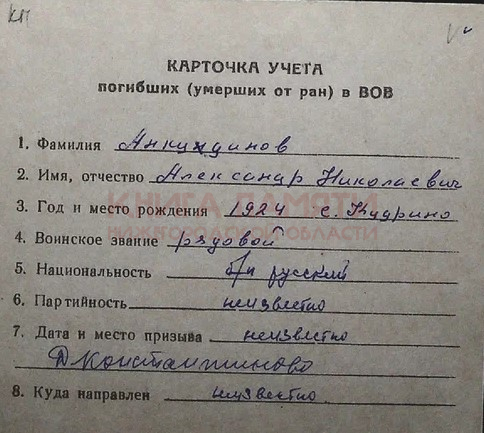 КП
КАРТОЧКА УЧЕТА
погибших (умерших от ран) в ВОВ
1. Фамилия Анкундинов
2. Имя, отчество Александр Николаевич
3. Год и место рождения 1924 с. Кудрино
КНИГА ПАМЯТИ
НИЖЕГОРОДСКОЙ ОБЛАСТИ
4. Воинское звание рядовой
5. Национальность б/п русский
6. Партийность неизвестно
7. Дата и место призыва неизвестно
Д Константиново
8. Куда направлен неизвестно